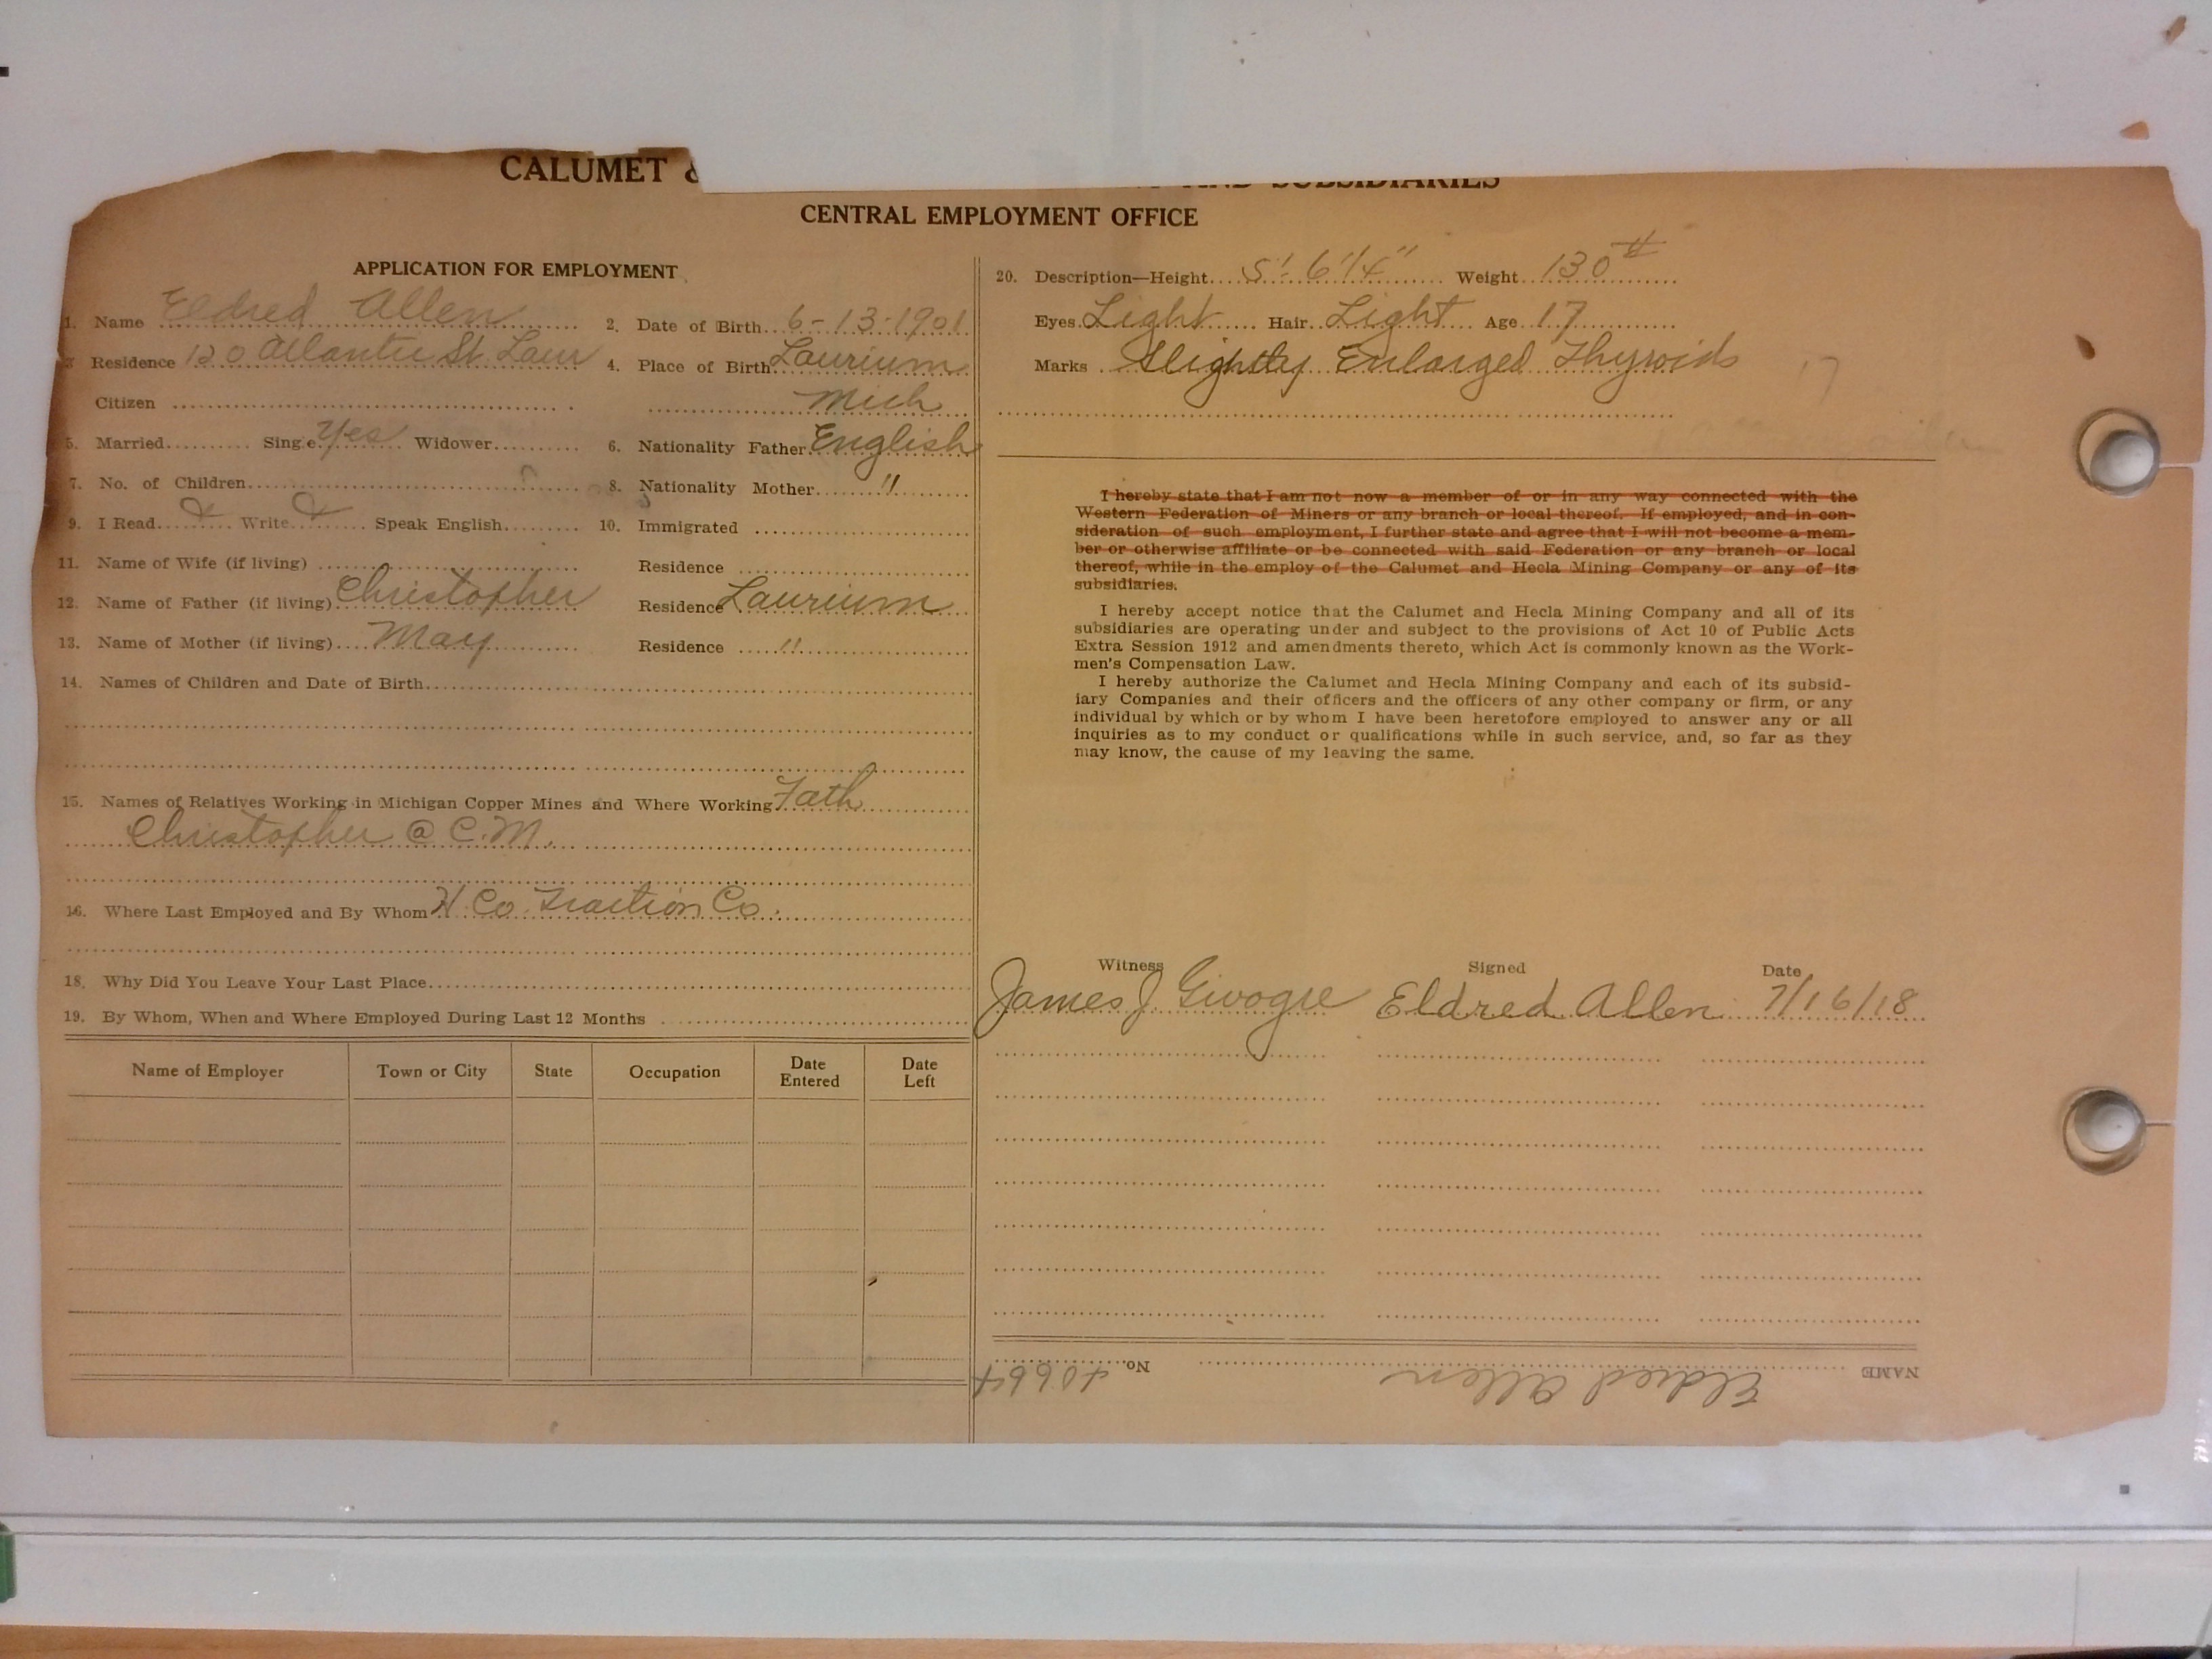 CALUMET &
AND SUBSIDIARIES
CENTRAL EMPLOYMENT OFFICE
APPLICATION FOR EMPLOYMENT
1. Name Eldred Allen 2. Date of Birth 6-13-1901
3 Residence 120 Atlantic St. Laur 4. Place of Birth Laurium
Citizen Mich
5. Married Single Yes Widower 6. Nationality Father English
7. No. of Children 8. Nationality Mother "
9. I Read Write Speak English 10. Immigrated
11. Name of Wife (if living) Residence
12. Name of Father (if living) Christopher Residence Laurium
13. Name of Mother (if living) May Residence "
14. Names of Children and Date of Birth
15. Names of Relatives Working in Michigan Copper Mines and Where Working Fath
Christopher @ C.M.
16. Where Last Employed and By Whom H. Co. Traction Co.
18. Why Did You Leave Your Last Place
19. By Whom, When and Where Employed During Last 12 Months
Name of Employer Town or City State Occupation Date Entered Date Left
20. Description—Height 5'-6 1/4" Weight 130 #
Eyes Light Hair Light Age 17
Marks Slightly Enlarged Thyroids
17
I hereby state that I am not now a member of or in any way connected with the
Western Federation of Miners or any branch or local thereof. If employed, and in con-
sideration of such employment, I further state and agree that I will not become a mem-
ber or otherwise affiliate or be connected with said Federation or any branch or local
thereof, while in the employ of the Calumet and Hecla Mining Company or any of its
subsidiaries.
I hereby accept notice that the Calumet and Hecla Mining Company and all of its
subsidiaries are operating under and subject to the provisions of Act 10 of Public Acts
Extra Session 1912 and amendments thereto, which Act is commonly known as the Work-
men's Compensation Law.
I hereby authorize the Calumet and Hecla Mining Company and each of its subsid-
iary Companies and their officers and the officers of any other company or firm, or any
individual by which or by whom I have been heretofore employed to answer any or all
inquiries as to my conduct or qualifications while in such service, and, so far as they
may know, the cause of my leaving the same.
Witness Signed Date
James J. Eldred Allen 7/16/18
NAME Eldred Allen No. 40664